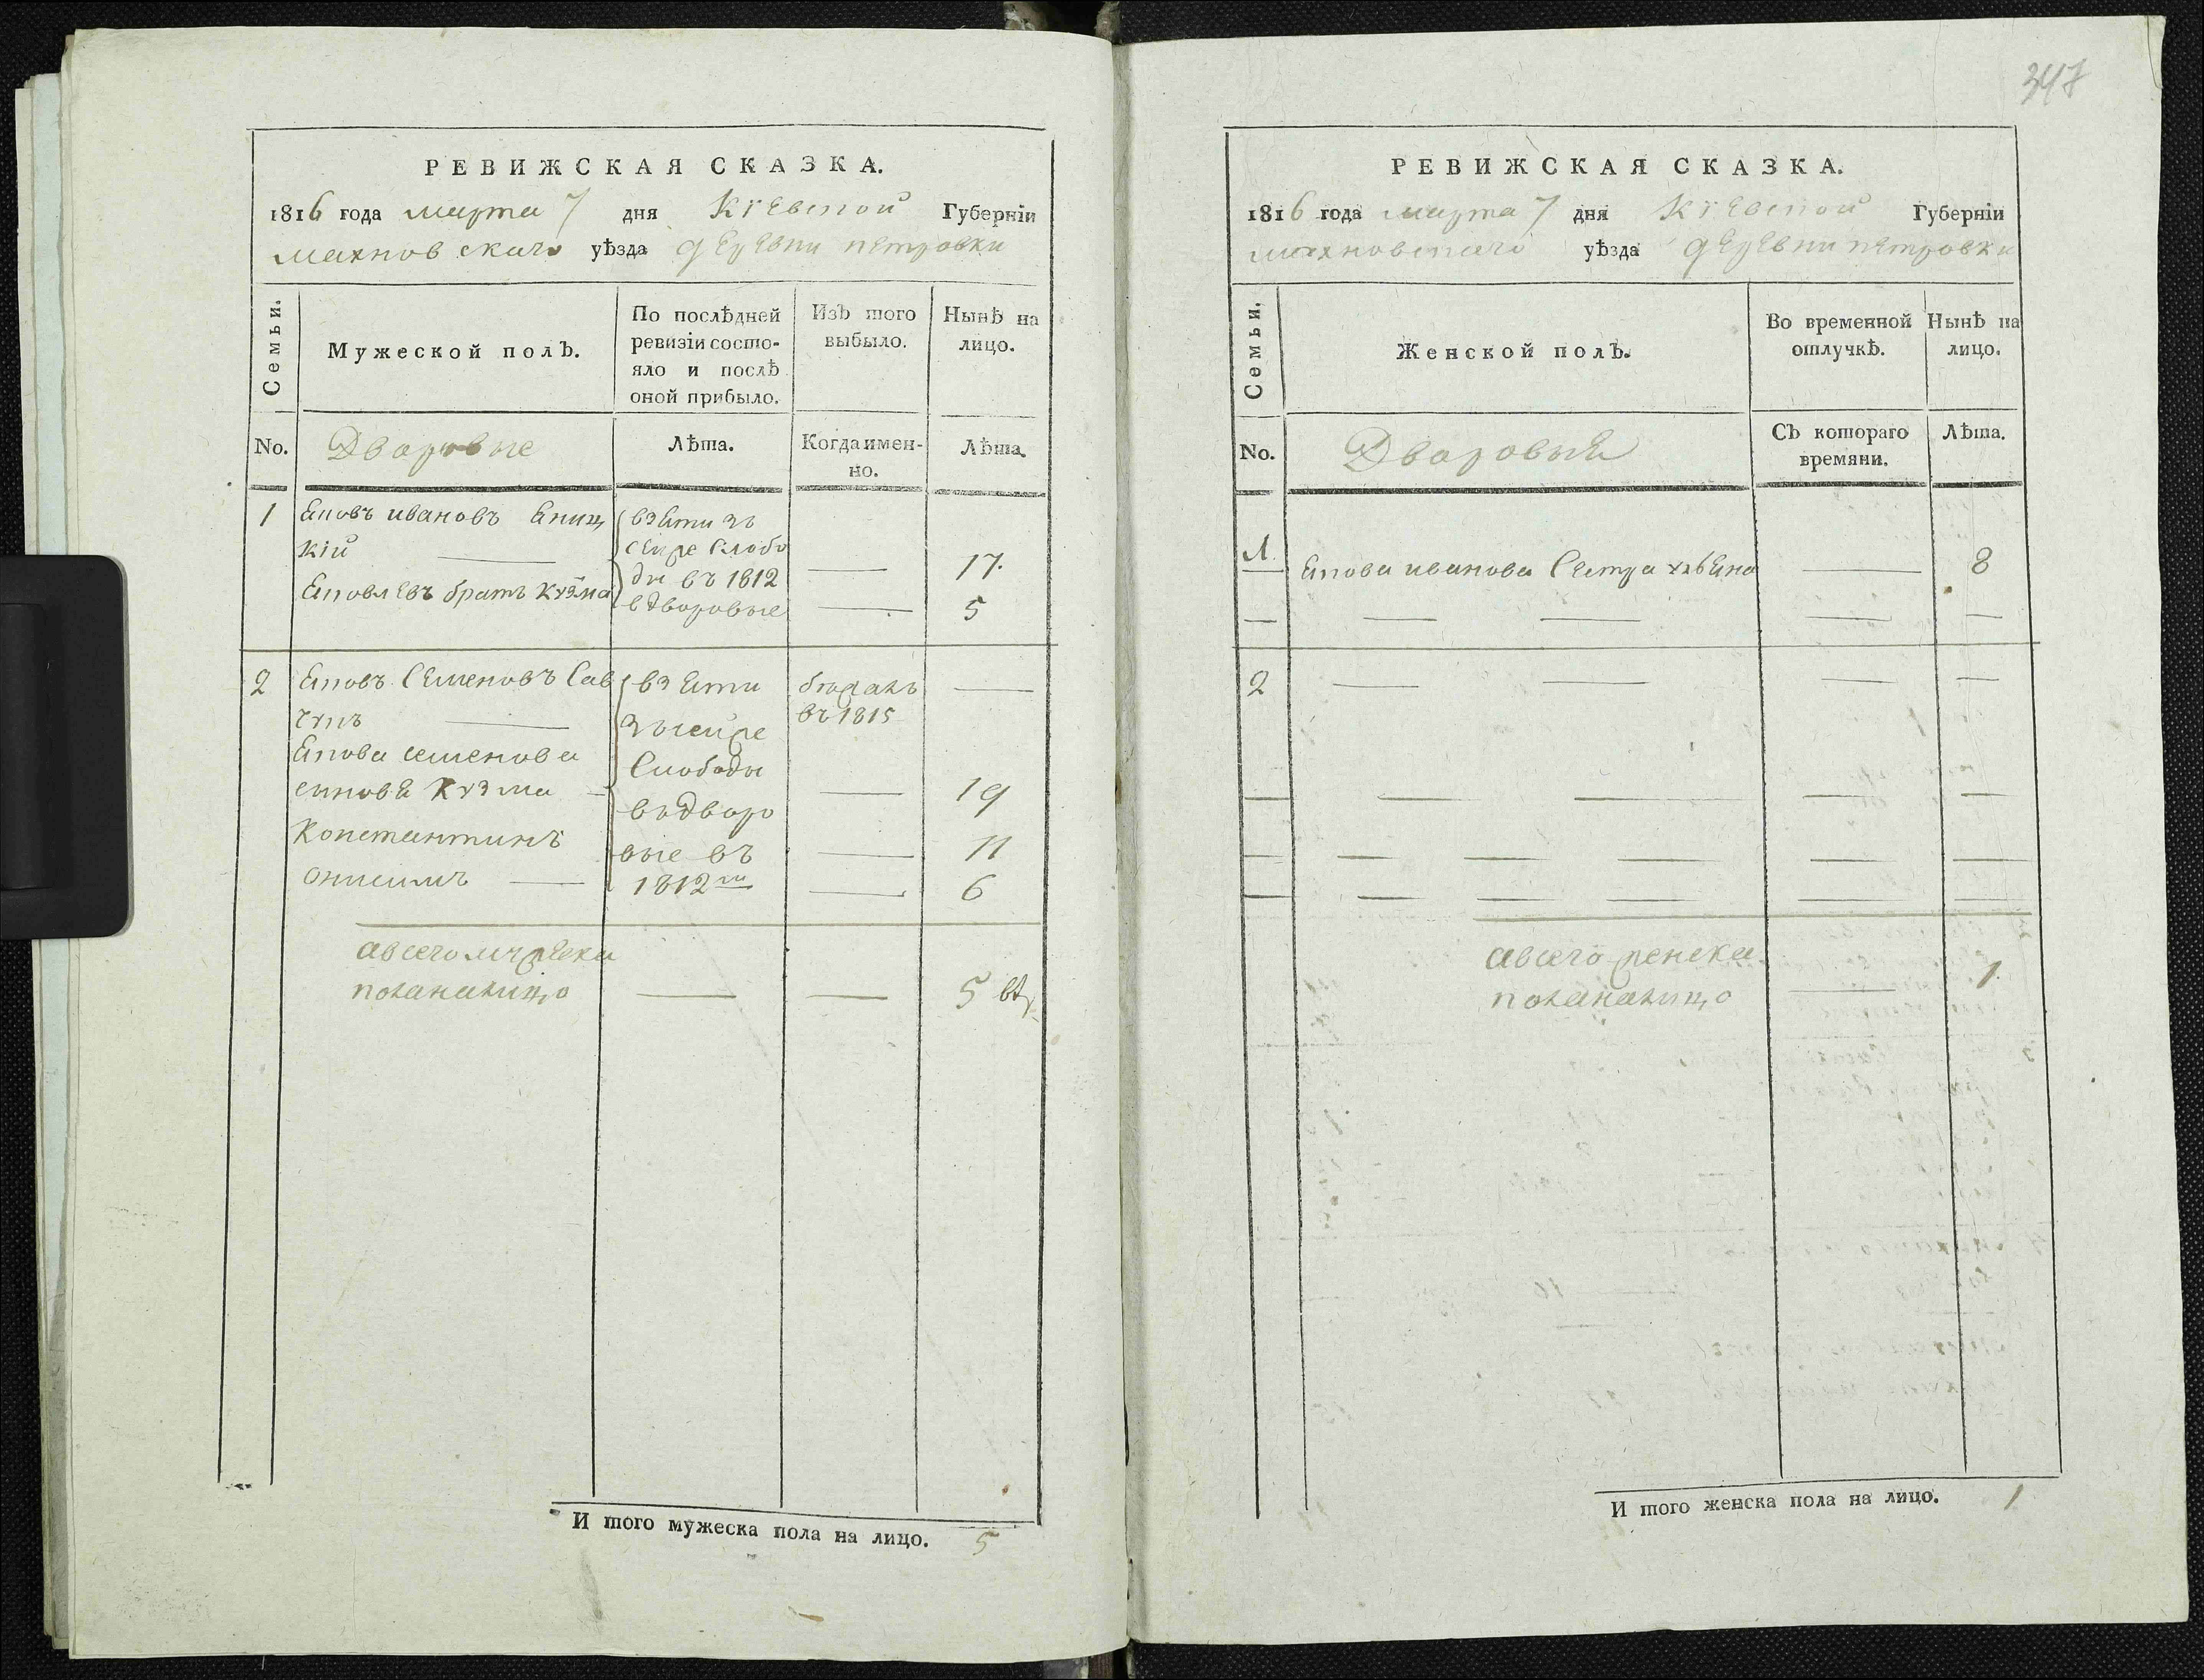 РЕВИЖСКАЯ СКАЗКА.
1816 года марта 7 дня Кіевской Губерніи
махновскаго уѣзда деревни петровки
Семьи.
Мужеской полъ.
По послѣдней
ревизіи состо-
яло и послѣ
оной прибыло.
Изъ того
выбыло.
Нынѣ на
лицо.
No.
Дворовые
Лѣта.
Когда имен-
но.
Лѣта.
1 Яковъ ивановъ
кій
взяти зъ
Слобо
ды въ 1812
вдворовые
17.
Яковлевъ братъ кузма
5
2 Яковъ Семеновъ Сав
чукъ
взяти
Слободы
въдворо
вые въ
1812м
отданъ
въ 1815
Якова семенова
синовя Кузма 19
Константинъ 11
онисимъ 6
авсего мужеска
полананлицо 5
И того мужеска пола на лицо. 5
347
РЕВИЖСКАЯ СКАЗКА.
1816 года марта 7 дня Кіевской Губерніи
махновскаго уѣзда деревни петровки
Семьи.
Женской полъ.
Во временной
отлучкѣ.
Нынѣ на
лицо.
No.
Дворовыя
Съ котораго
времяни.
Лѣта.
1 Якова иванова Сестра 8
2
авсего женска
поланалицо 1.
И того женска пола на лицо. 1